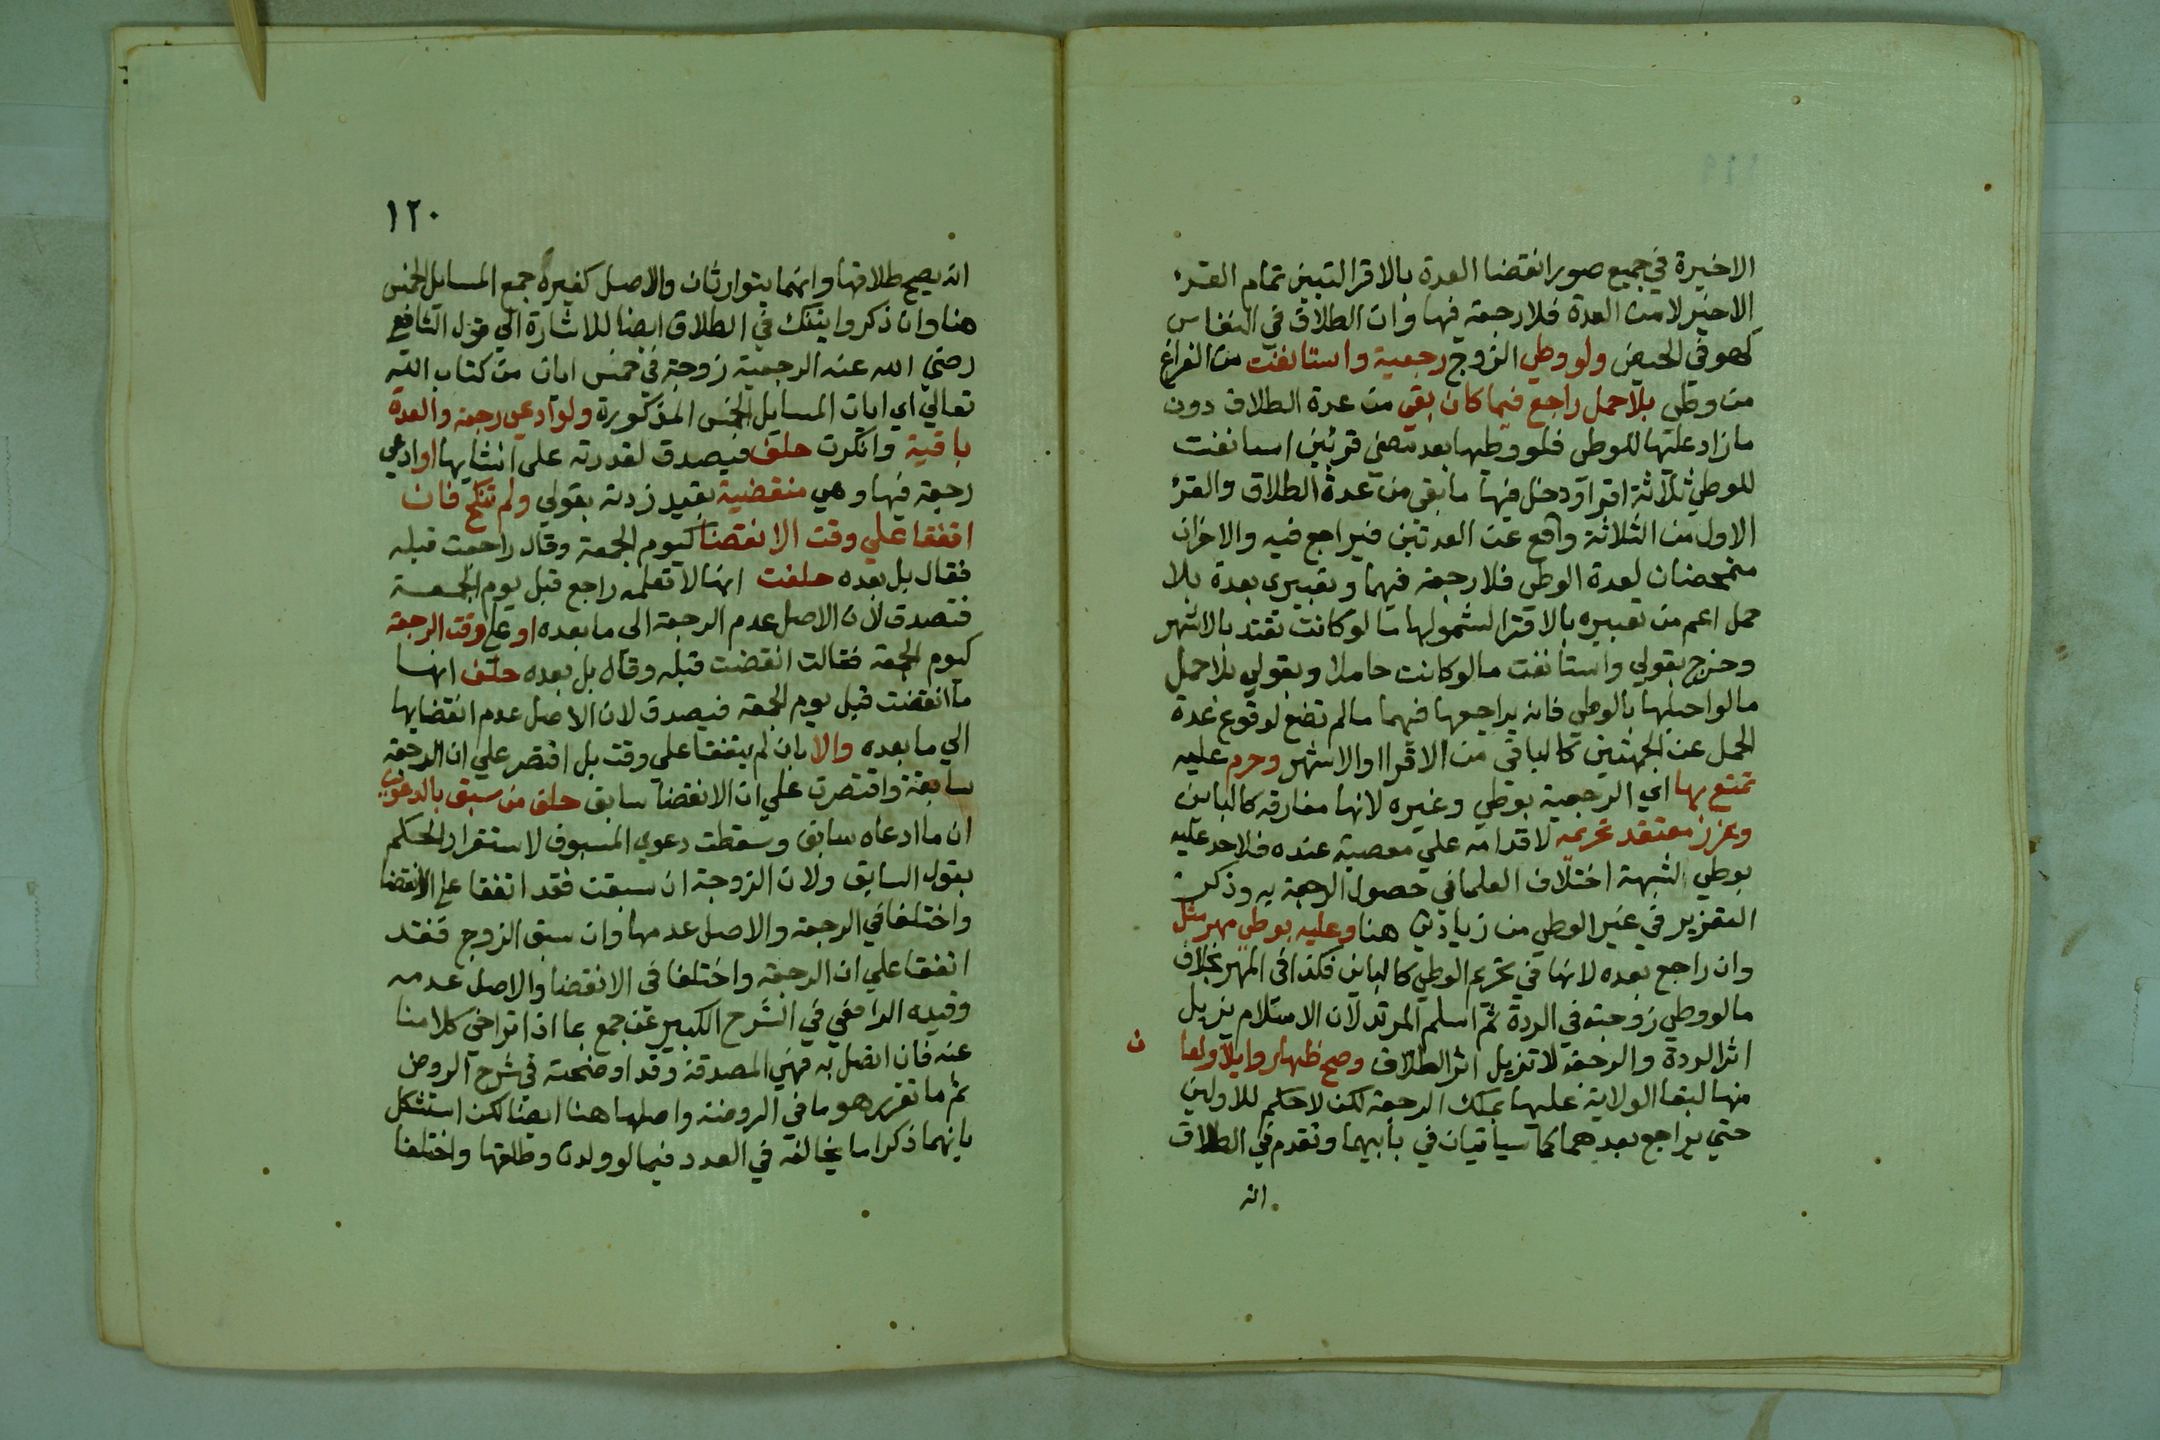 الاخيرة في جميع صور انقضا العدة بالاقرا لتبين تمام القرء
الاخير لا من العدة فلا رجعة فيها وان الطلاق في النفاس
كهو في الحيض ولو وطي الزوج رجعية واستانفت من الفراغ
من وطي بلا حمل راجع فيما كان بقي من عدة الطلاق دون
ما زاد عليها للوطي فلو وطيها بعد مضي قرئين استانفت
للوطي ثلاثة اقرا ودخل فيها ما بقي من عدة الطلاق والقرء
الاول من الثلاثة واقع عن العدتين فيراجع فيه والاخران
متمحضان لعدة الوطي فلا رجعة فيهما وتعبيري بعدة بلا
حمل اعم من تعبيره بالاقرا لشمولها ما لو كانت تعتد بالاشهر
وخرج بقولي واستانفت ما لو كانت حاملا وبقولي بلا حمل
ما لو احبلها بالوطي فانه يراجعها فيهما ما لم تضع لوقوع عدة
الحمل عن الجهتين كالباقي من الاقرا او الاشهر وحرم عليه
تمتع بها اي الرجعية بوطي وغيره لانها مفارقة كالباين
وعزر معتقد تحريمه لاقدامه علي معصية عنده فلا حد عليه
بوطي لشبهة اختلاف العلما في حصول الرجعة به وذكر
التعزير في غير الوطي من زيادتي هنا وعليه بوطي مهر مثل
وان راجع بعده لانها في تحريم الوطي كالباين فكذا في المهر بخلاف
ما لو وطي زوجته في الردة ثم اسلم المرتد لان الاسلام يزيل
اثر الردة والرجعة لا تزيل اثر الطلاق وصح ظهار وايلا ولعا ن
منها لبقا الولاية عليها بملك الرجعة لكن لا حكم للاولين
حتي يراجع بعدهما كما سياتيان في بابيهما وتقدم في الطلاق
انه
١٢٠
انه يصح طلاقها وانهما يتوارثان والاصل كغيره جمع المسايل الخمس
هنا وان ذكروا بتلك في الطلاق ايضا للاشارة الي قول الشافعي
رضي الله عنه الرجعية زوجة في خمس ايات من كتاب الله
تعالي اي ايات المسايل الخمس المذكورة ولو ادعي رجعة والعدة
باقية وانكرت حلف فيصدق لقدرته علي انشايها او ادعي
رجعة فيها وهي منقضية بقيد زدته بقولي ولم تنكح فان
اتفقا علي وقت الانقضا كيوم الجمعة وقال راجعت قبله
فقال بل بعده حلفت انها لا تعلمه راجع قبل يوم الجمعة
فتصدق لان الاصل عدم الرجعة الي ما بعده او علي وقت الرجعة
كيوم الجمعة فقالت انقضت قبله وقال بل بعده حلف انها
ما انقضت قبل يوم الجمعة فيصدق لان الاصل عدم انقضايها
الي ما بعده والا بان لم يتفقا علي وقت بل اقتصر علي ان الرجعة
سابقة واقتصرت علي ان الانقضا سابق حلف من سبق بالدعوي
ان ما ادعاه سابق وسقطت دعوي المسبوق لاستقرار الحكم
بقول السابق ولان الزوجة ان سبقت فقد اتفقا علي الانقضا
واختلفا في الرجعة والاصل عدمها وان سبق الزوج فقد
اتفقا علي ان الرجعة واختلفا في الانقضا والاصل عدمه
وقيده الرافعي في الشرح الكبير عن جمع بما اذا تراخي كلامها
عنه فان اتصل به فهي المصدقة وقد اوضحته في شرح الروض
ثم ما تقرر هو ما في الروضة واصلها هنا ايضا لكن استشكل
بانهما ذكرا ما يخالفه في العدد فيما لو ولدت وطلقها واختلفا